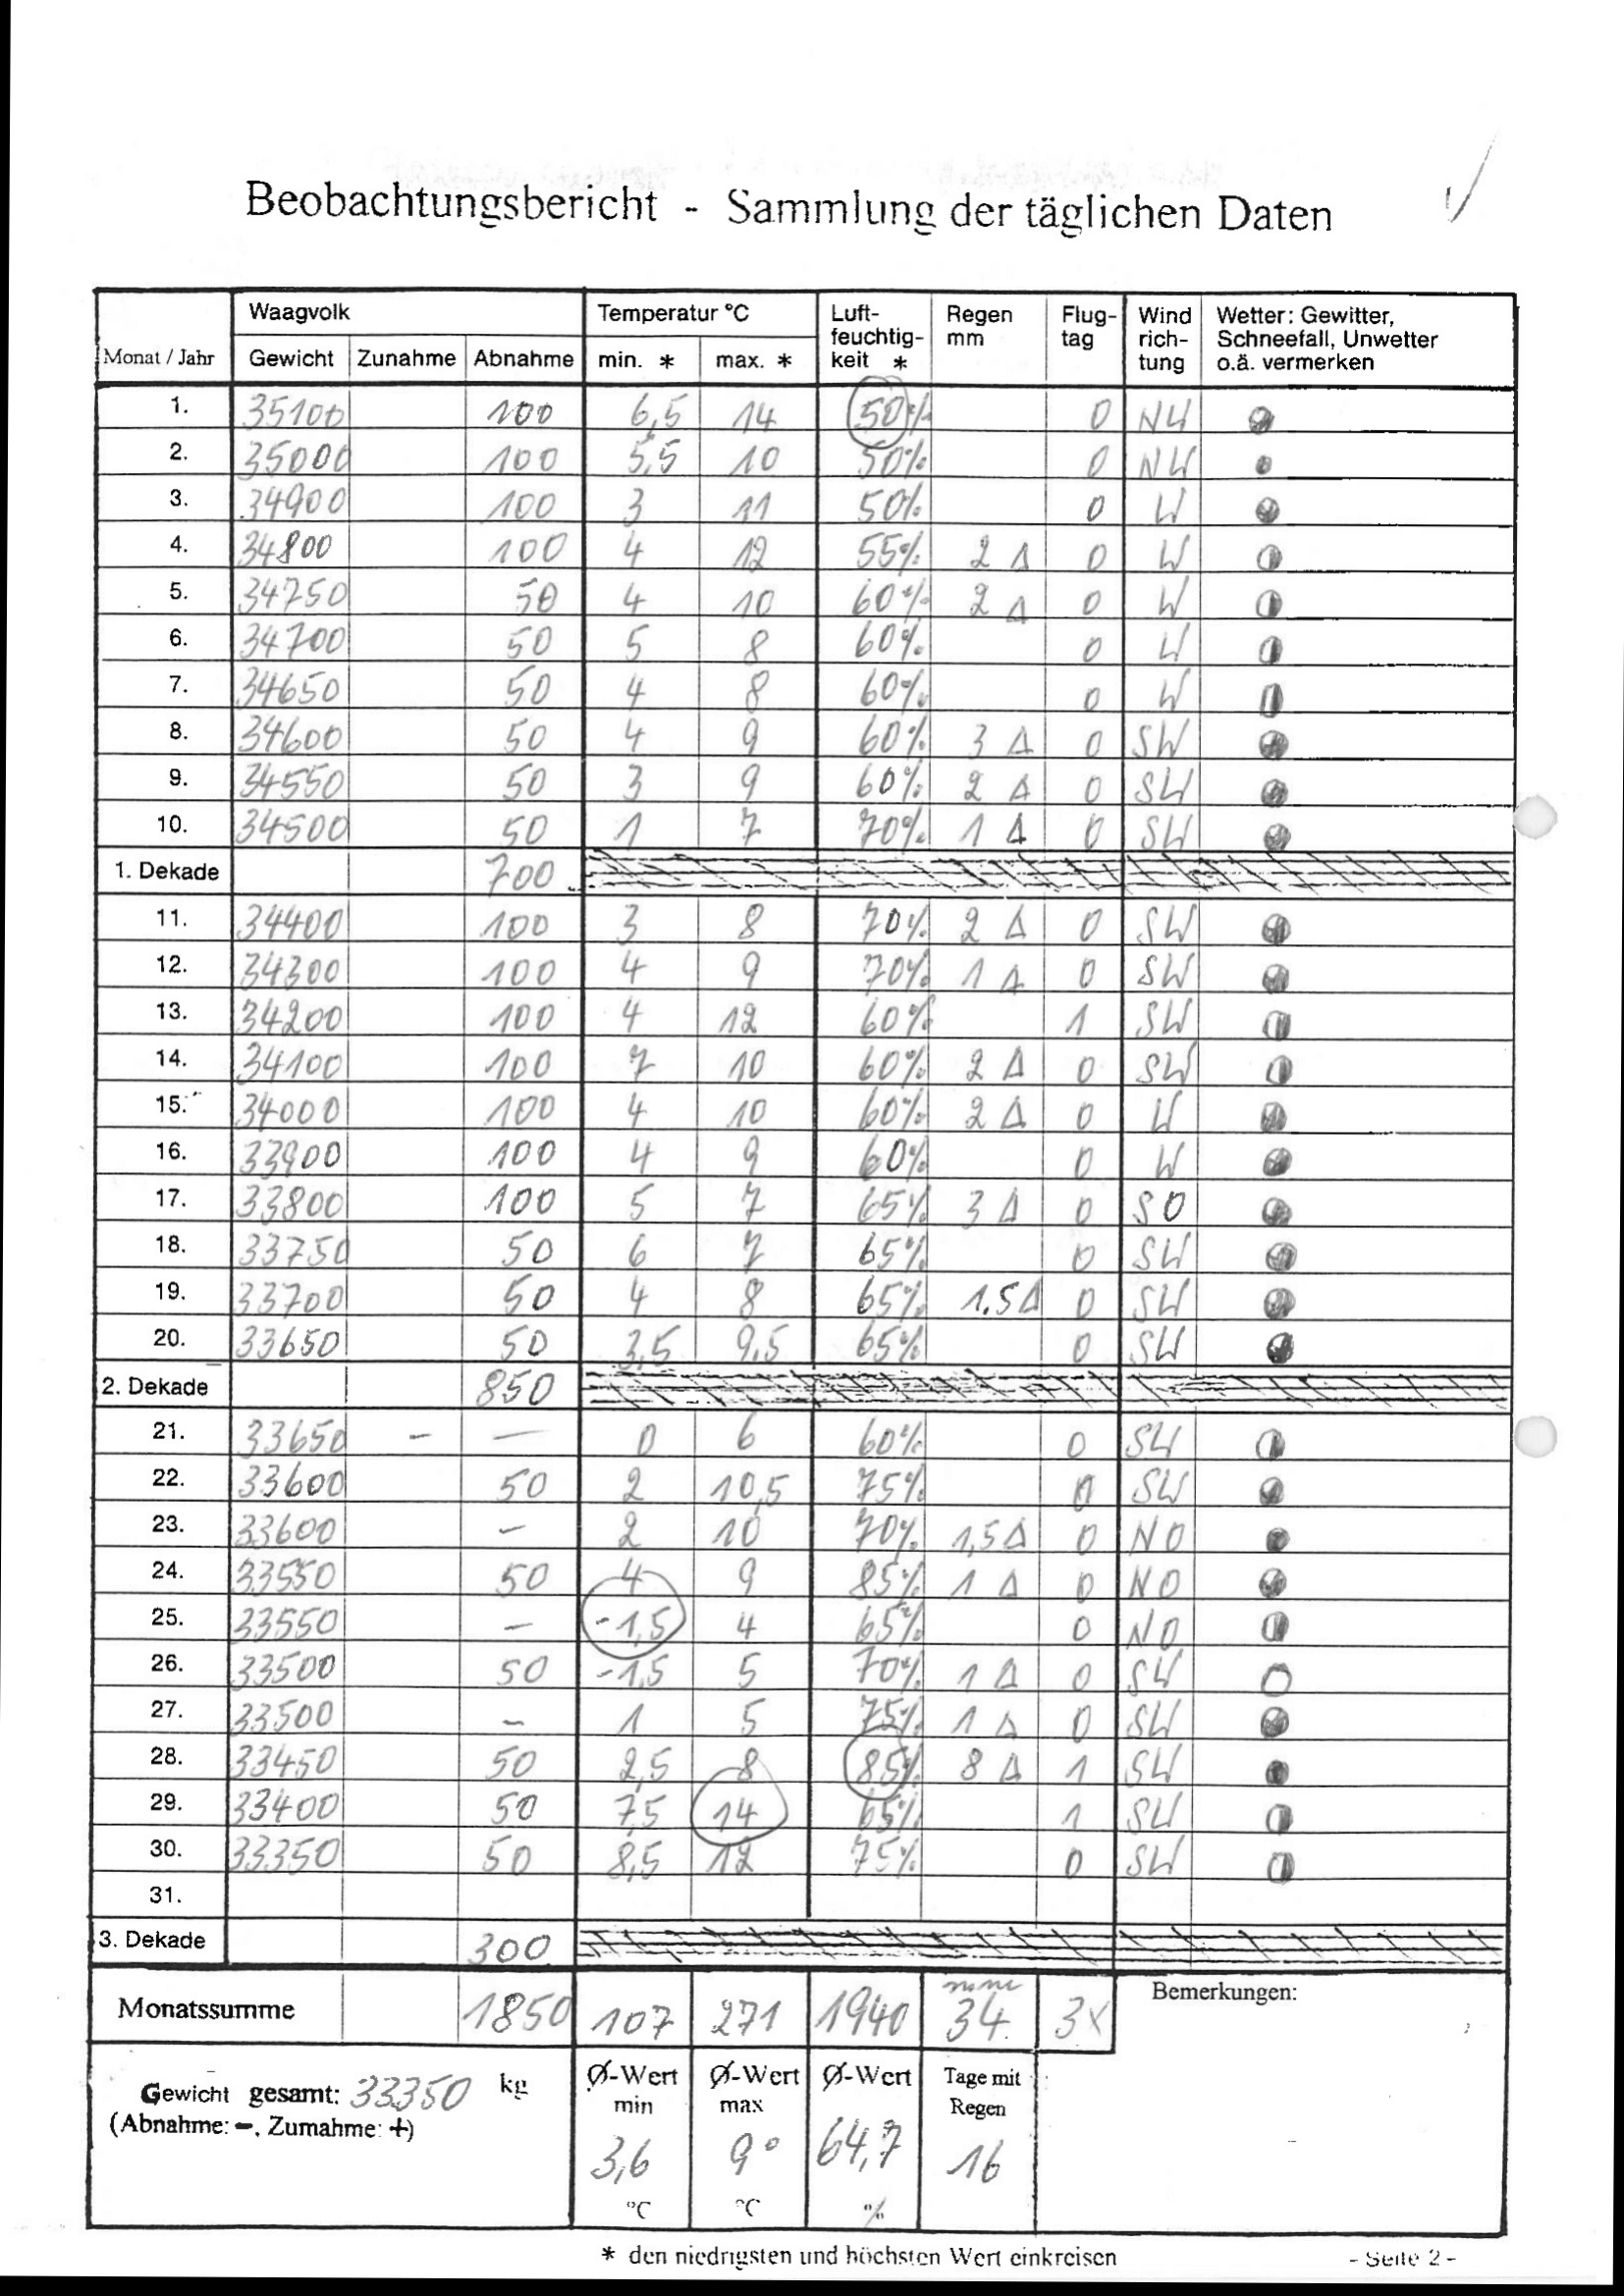 Beobachtungsbericht - Sammlung der täglichen Daten
Monat / Jahr Waagvolk Temperatur °C Luft-feuchtig-keit * Regen mm Flug-tag Wind rich-tung Wetter: Gewitter, Schneefall, Unwetter o.ä. vermerken
Gewicht Zunahme Abnahme min. * max. *
1. 35100 100 6,5 14 50% 0 NW
2. 35000 100 5,5 10 50% 0 NW
3. 34900 100 3 11 50% 0 W
4. 34800 100 4 12 55% 2 Δ 0 W
5. 34750 50 4 10 60% 2 Δ 0 W
6. 34700 50 5 8 60% 0 W
7. 34650 50 4 8 60% 0 W
8. 34600 50 4 9 60% 3 Δ 0 SW
9. 34550 50 3 9 60% 2 Δ 0 SW
10. 34500 50 1 7 70% 1 Δ 0 SW
1. Dekade 700
11. 34400 100 3 8 70% 2 Δ 0 SW
12. 34300 100 4 9 70% 1 Δ 0 SW
13. 34200 100 4 12 60% 1 SW
14. 34100 100 7 10 60% 2 Δ 0 SW
15. 34000 100 4 10 60% 2 Δ 0 W
16. 33900 100 4 9 60% 0 W
17. 33800 100 5 7 65% 3 Δ 0 SO
18. 33750 50 6 7 65% 0 SW
19. 33700 50 4 8 65% 1.5 Δ 0 SW
20. 33650 50 3,5 9,5 65% 0 SW
2. Dekade 850
21. 33650 - - 0 6 60% 0 SW
22. 33600 50 2 10,5 75% 0 SW
23. 33600 - 2 10 70% 1,5 Δ 0 NO
24. 33550 50 4 9 85% 1 Δ 0 NO
25. 33550 - -1,5 4 65% 0 NO
26. 33500 50 -1,5 5 70% 1 Δ 0 SW
27. 33500 - 1 5 75% 1 Δ 0 SW
28. 33450 50 2,5 8 85% 8 Δ 1 SW
29. 33400 50 7,5 14 65% 1 SW
30. 33350 50 8,5 12 75% 0 SW
31.
3. Dekade 300
Monatssumme 1850 107 271 1940 mm 34 3x Bemerkungen:
Gewicht gesamt: 33350 kg
(Abnahme: -, Zumahme: +)
Ø-Wert min 3,6 °C
Ø-Wert max 9° °C
Ø-Wert 64,7 %
Tage mit Regen 16
* den niedrigsten und höchsten Wert einkreisen
- Seite 2 -